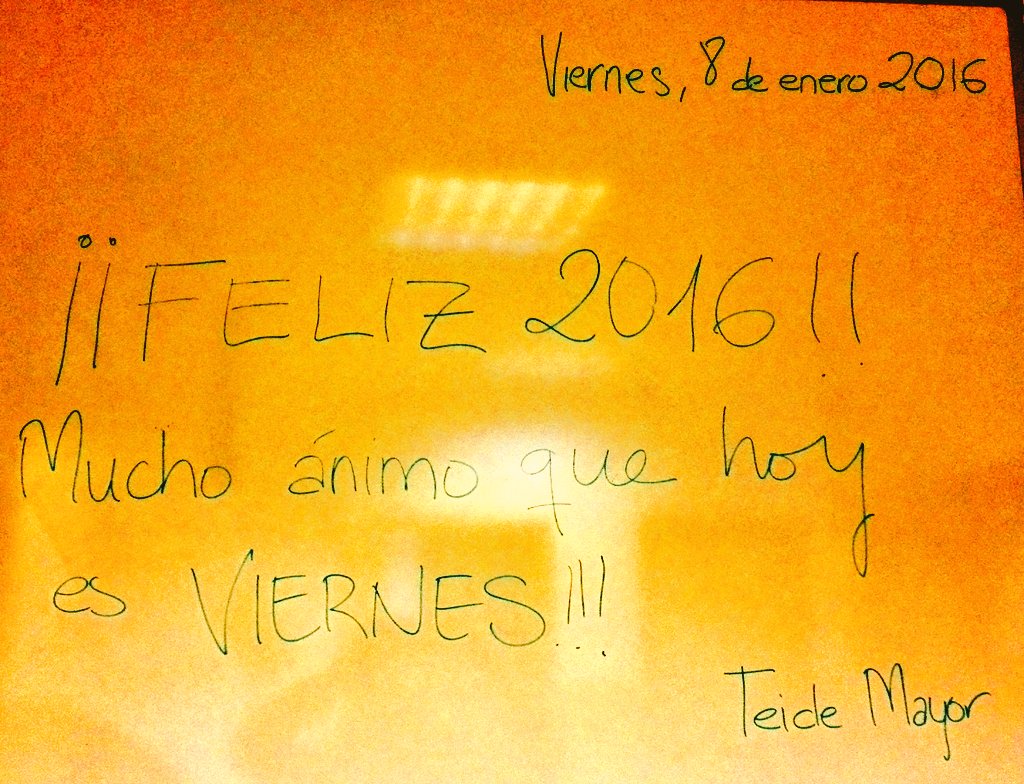 Viernes, 8 de enero 2016
¡¡FELIZ 2016!!
Mucho ánimo que hoy
es VIERNES!!!
Teide Mayor